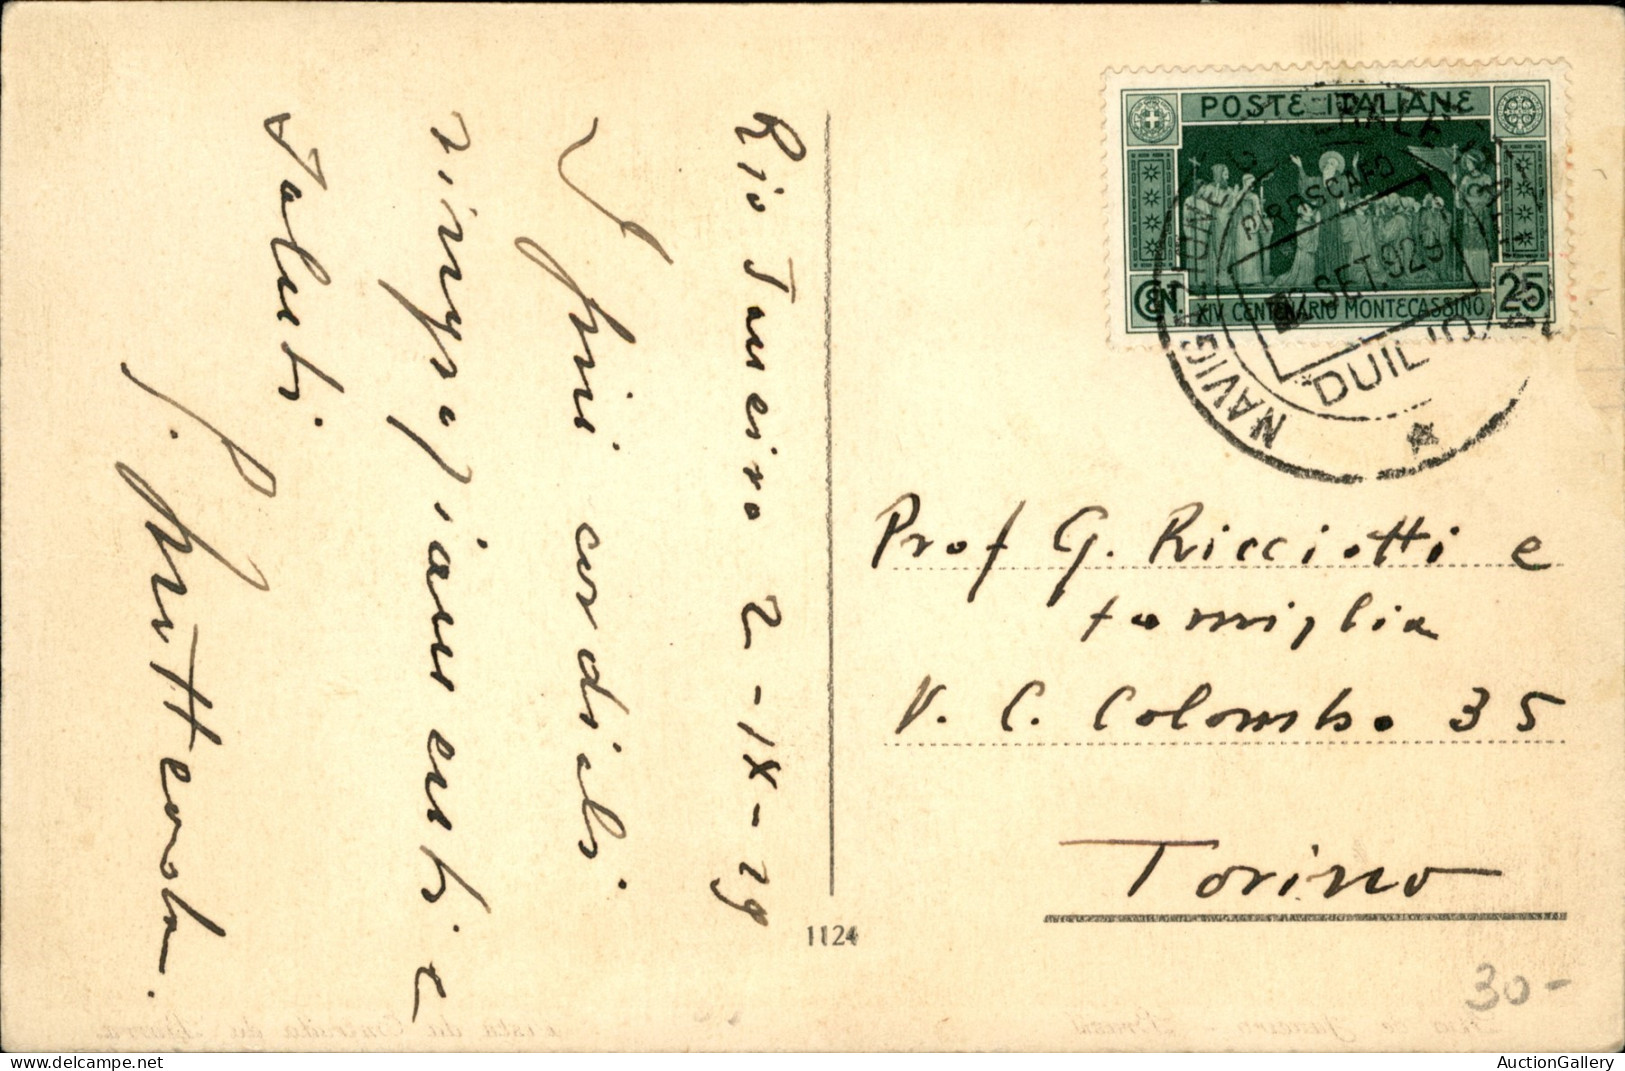 POSTE ITALIANE
CEN. XIV CENTENARIO MONTECASSINO 25
NAVIGAZIONE GENERALE ITALIANA
PIROSCAFO
SET. 929
DUILIO
Rio Janeiro 2-IX-29
I più cordiali
ringraziamenti e
saluti.
Prof G. Ricciotti e
famiglia
V. C. Colombo 35
Torino
1124
30-
AuctionGallery